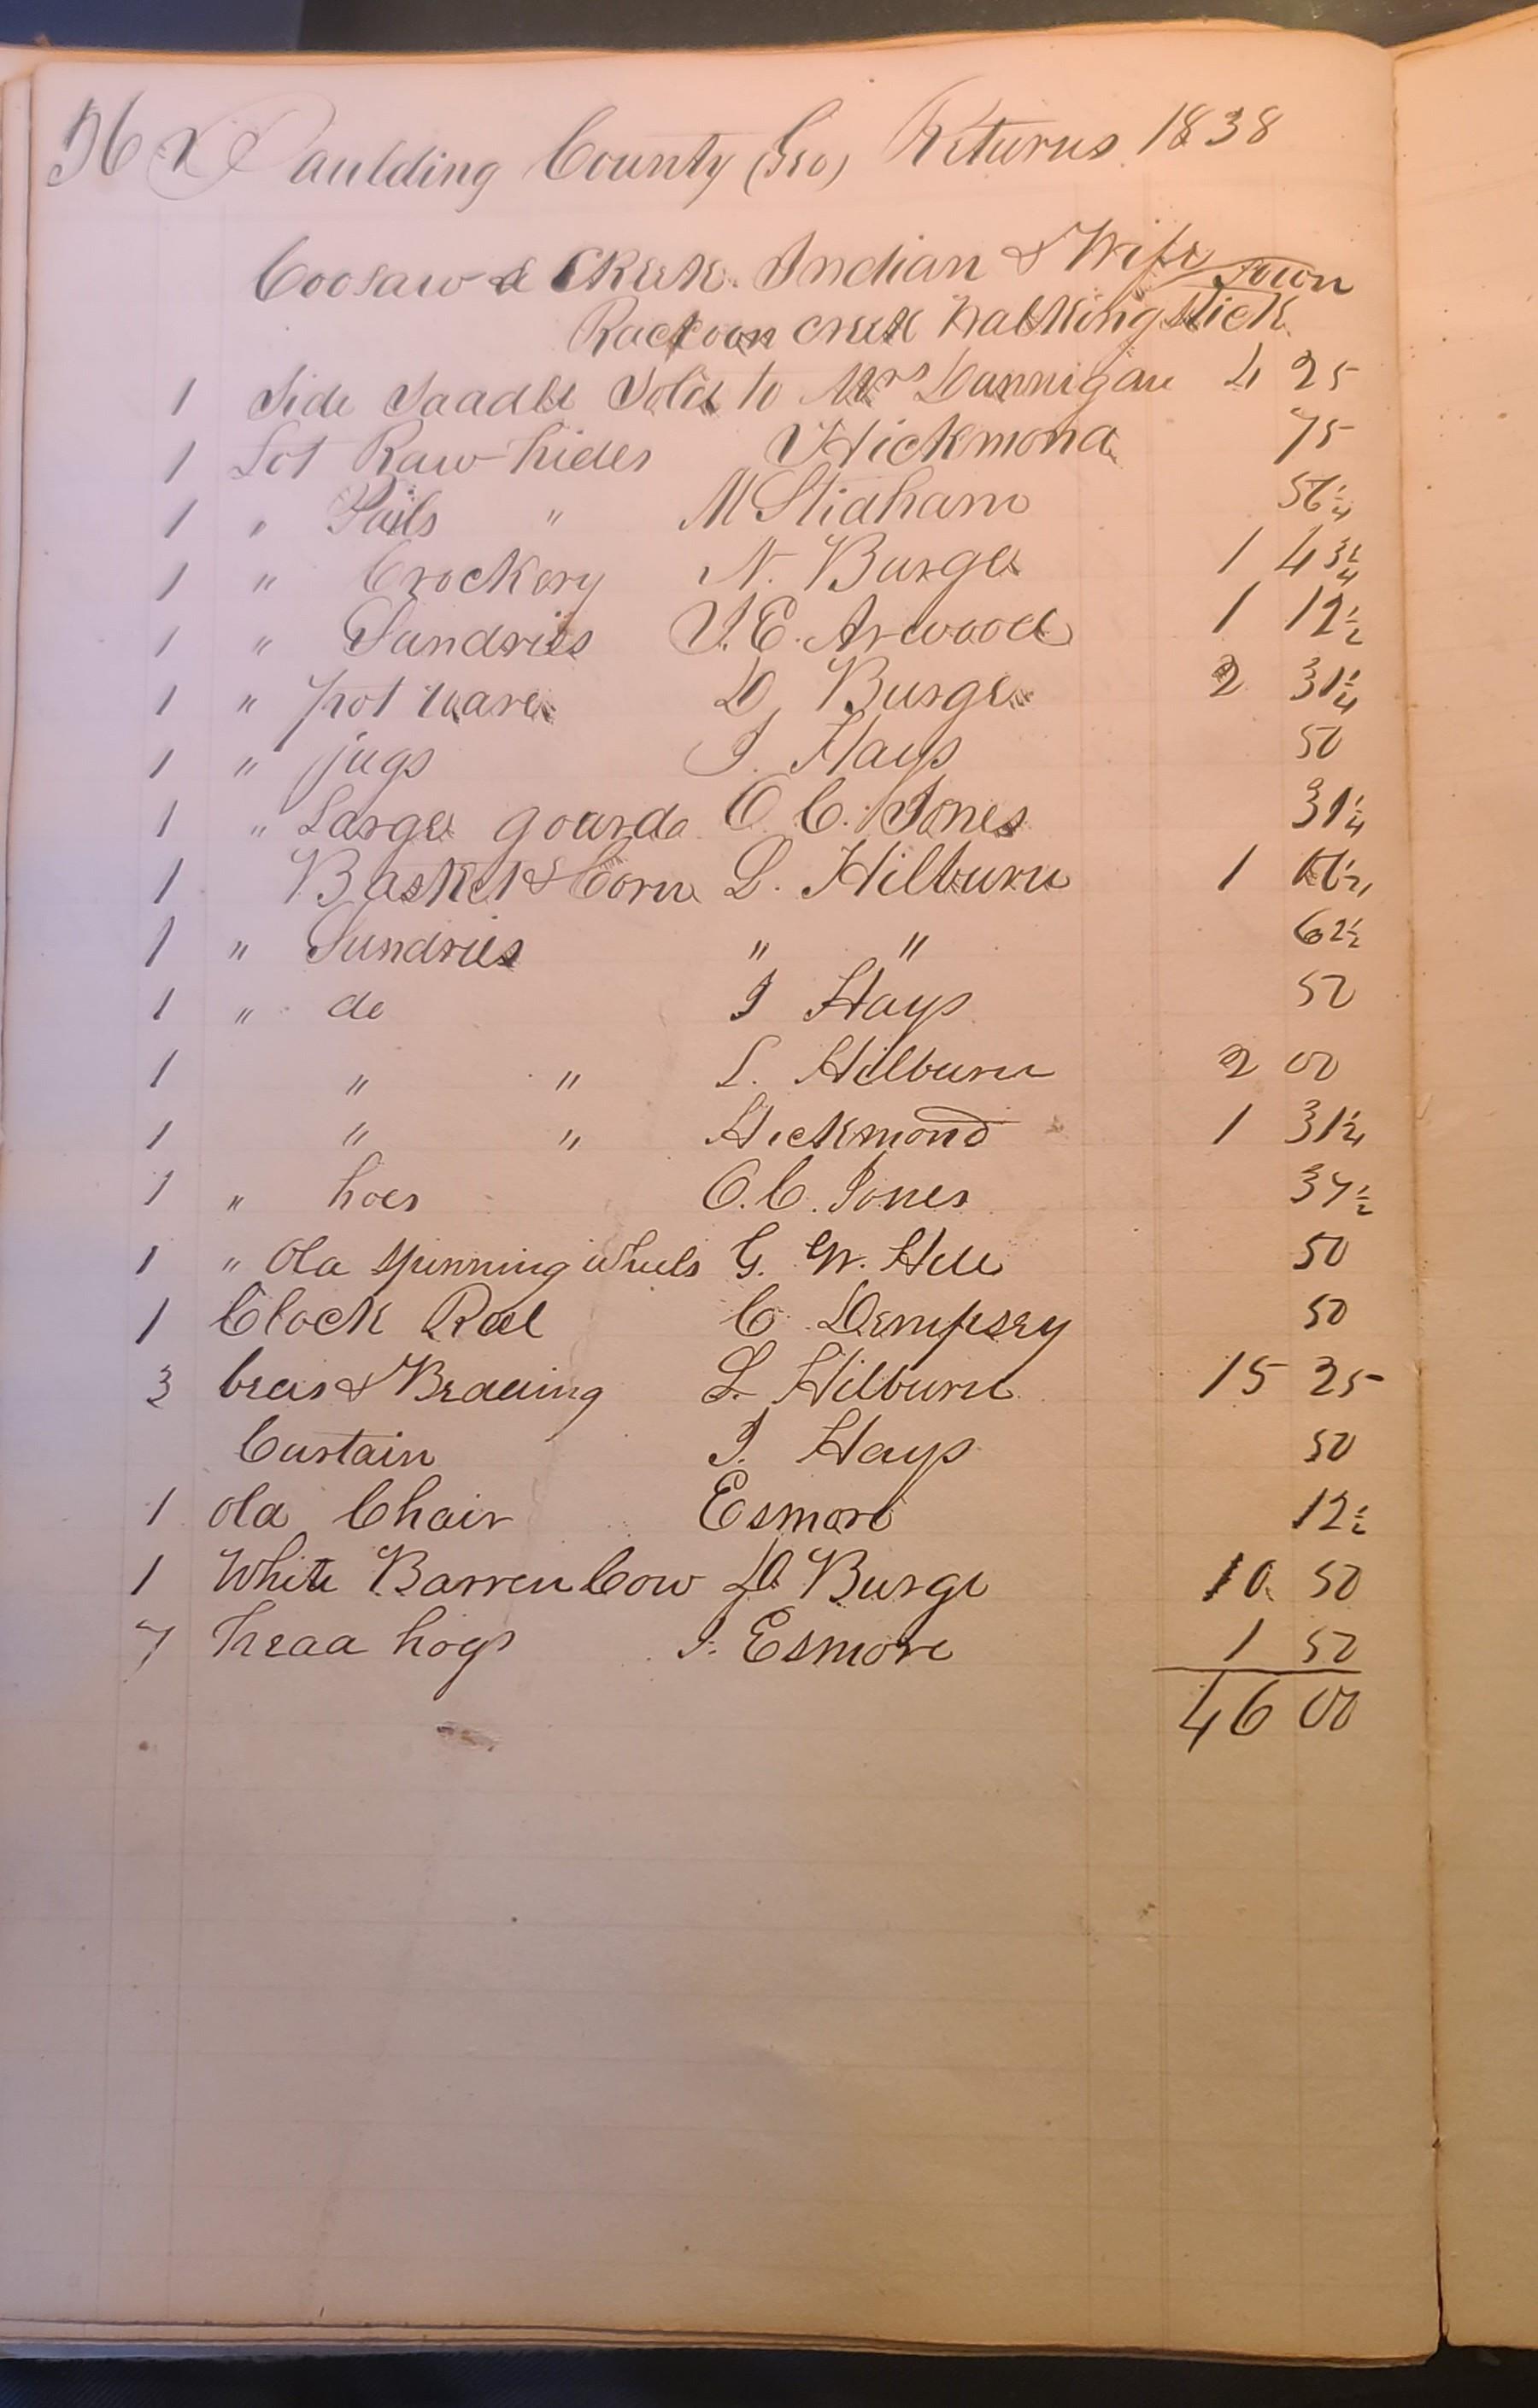 56 Paulding County (Geo) Returns 1838
Coosaw a Creek Indian & Wife Town
Raccoon creek Walkingstick
1 Side Saadle Sold to Mrs Dunnigan 4 25
1 Lot Raw hides Hickmond 75
1 " Pails " M Stidham 56¼
1 " Crockery N. Burge 1 43¾
1 " Sundries J. E. Arwood 1 12½
1 " pot ware D Burge 2 31¼
1 " jugs J. Hays 50
1 " Large gourds O. C. Jones 31¼
1 Basket & Corn L. Hilburn 1
1 " Sundries " " 62½
1 " do J Hays 50
1 " " L. Hilburn 2 00
1 " " Hickmond 1 31¼
1 " hoes O. C. Jones 37½
1 " Old Spinning Wheels G. W. Hill 50
1 Clock Reel C Dempsey 50
3 beds & Bedding L. Hilburn 15 25
Curtain J. Hays 50
1 old Chair Esmore 12½
1 White Barren Cow D Burge 10 50
7 head hogs J. Esmore 1 50
46 00